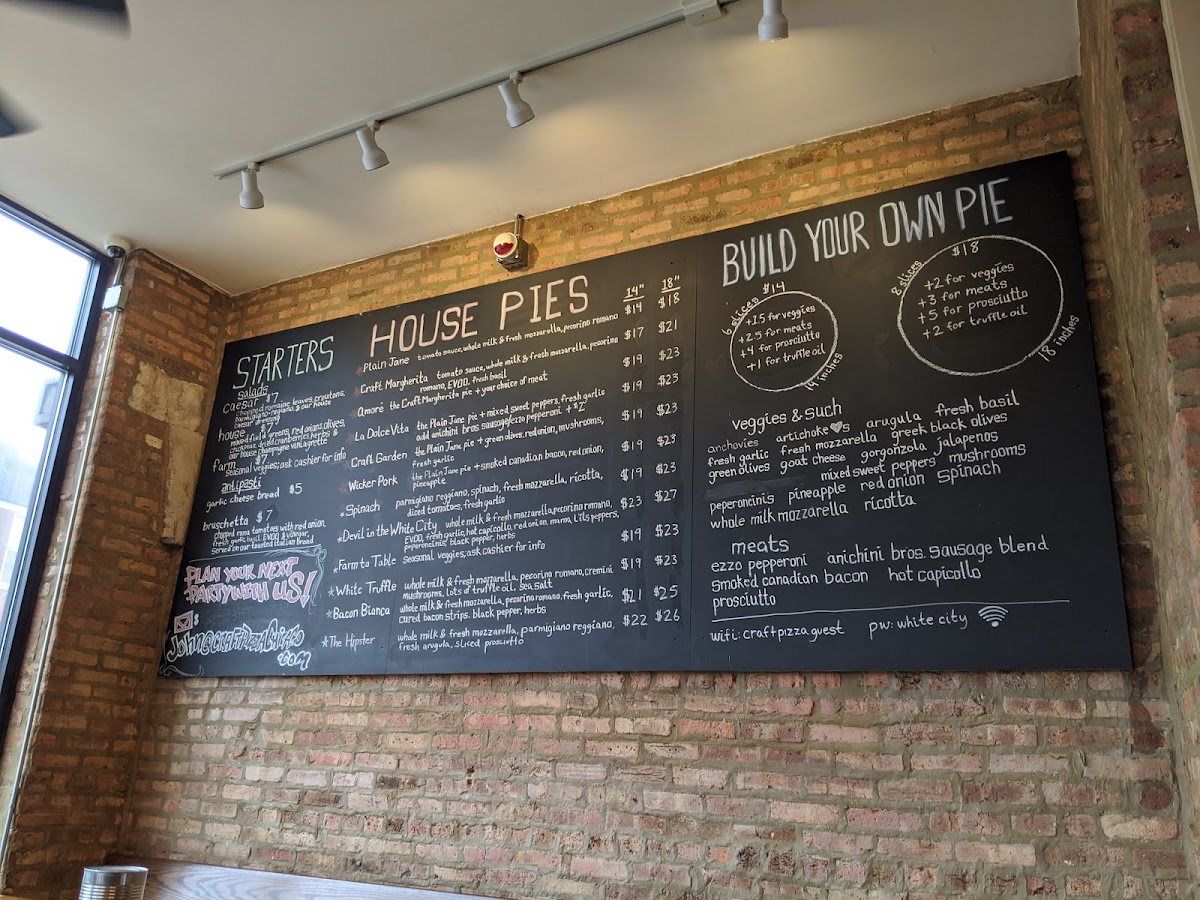 STARTERS
salads
caesar $7
chopped romaine leaves, croutons,
parmigiano-regiano, & our house
caesar dressing
house $7
mixed field greens, red onions, olives,
chickpeas, dried cranberries, herbs &
our house champagne vinaigrette
farm $7
seasonal veggies; ask cashier for info
antipasti
garlic cheese bread $5
bruschetta $7
chopped roma tomatoes with red onion,
fresh garlic, basil, EVOO, & vinegar,
served on our toasted italian bread
PLAN YOUR NEXT
PARTY WITH US!
HOUSE PIES
14" 18"
Plain Jane tomato sauce, whole milk & fresh mozzarella, pecorino romano $14 $18
Craft Margherita tomato sauce, whole milk & fresh mozzarella, pecorino $17 $21
romano, EVOO, fresh basil
Amoré the Craft Margherita pie + your choice of meat $19 $23
La Dolce Vita the Plain Jane pie + mixed sweet peppers, fresh garlic $19 $23
add anichini bros. sausage/ezzo pepperoni + $2
Craft Garden the Plain Jane pie + green olives, red onion, mushrooms, $19 $23
fresh garlic
Wicker Park the Plain Jane pie + smoked canadian bacon, red onion, $19 $23
pineapple
Spinach parmigiano reggiano, spinach, fresh mozzarella, ricotta, $19 $23
diced tomatoes, fresh garlic
Devil in the White City whole milk & fresh mozzarella, pecorino romano, $23 $27
EVOO, fresh garlic, hot capicollo, red onion, mama lil's peppers,
peperoncinis, black pepper, herbs
Farm to Table seasonal veggies, ask cashier for info $19 $23
White Truffle whole milk & fresh mozzarella, pecorino romano, cremini $19 $23
mushrooms, lots of truffle oil, sea salt
Bacon Bianca whole milk & fresh mozzarella, pecorino romano, fresh garlic, $21 $25
cured bacon strips, black pepper, herbs
The Hipster whole milk & fresh mozzarella, parmigiano reggiano, $22 $26
fresh arugula, sliced prosciutto
BUILD YOUR OWN PIE
6 slices
$14
+1.5 for veggies
+2.5 for meats
+4 for prosciutto
+1 for truffle oil
14 inches
8 slices
$18
+2 for veggies
+3 for meats
+5 for prosciutto
+2 for truffle oil
18 inches
veggies & such
anchovies artichoke♥s arugula fresh basil
fresh garlic fresh mozzarella greek black olives
green olives goat cheese gorgonzola jalapenos
mixed sweet peppers mushrooms
peperoncinis pineapple red onion spinach
whole milk mozzarella ricotta
meats
ezzo pepperoni anichini bros. sausage blend
smoked canadian bacon hot capicollo
prosciutto
wifi: craftpizza guest pw: white city